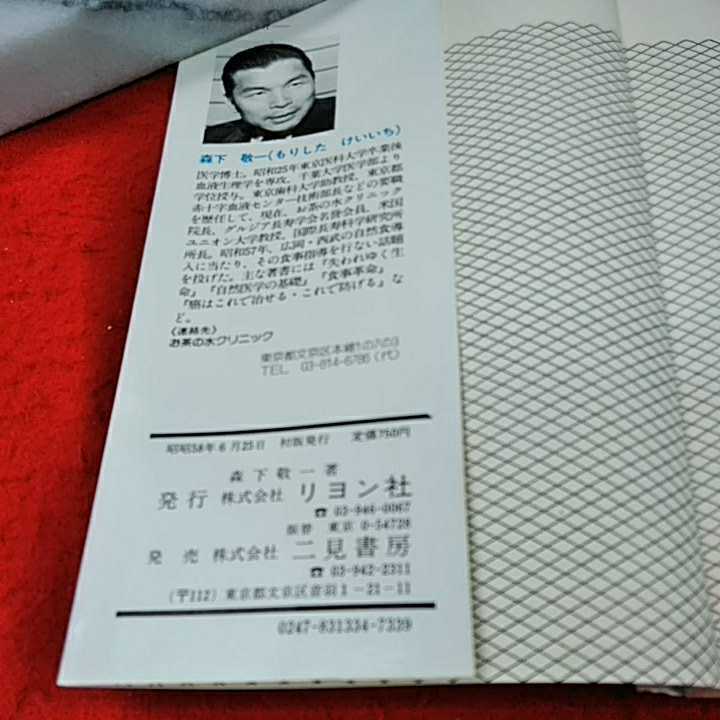 森下 敬一(もりした けいいち)
医学博士。昭和25年東京医科大学卒業後
血液生理学を専攻、千葉大学医学部より
学位授与。東京歯科大学助教授、東京都
赤十字血液センター技術部長などの要職
を歴任して、現在、お茶の水クリニック
院長、グルジア長寿学会名誉会員、米国
ユニオン大学教授、国際長寿科学研究所
所長。昭和57年、広岡・西武の自然食導
入に当たり、その食事指導を行ない話題
を投げた。主な著書には『失われゆく生
命』『自然医学の基礎』『食事革命』
『癌はこれで治せる・これで防げる』な
ど。
〈連絡先〉
お茶の水クリニック
東京都文京区本郷1の7の3
TEL 03-814-6786(代)
昭昭58年6月25日 初版発行 定価750円
森下敬一著
発行 株式会社 リヨン社
☎ 03-946-0067
振替 東京 0-54728
発売 株式会社 二見書房
☎ 03-942-2311
(〒112) 東京都文京区音羽1-21-11
0247-831334-7339